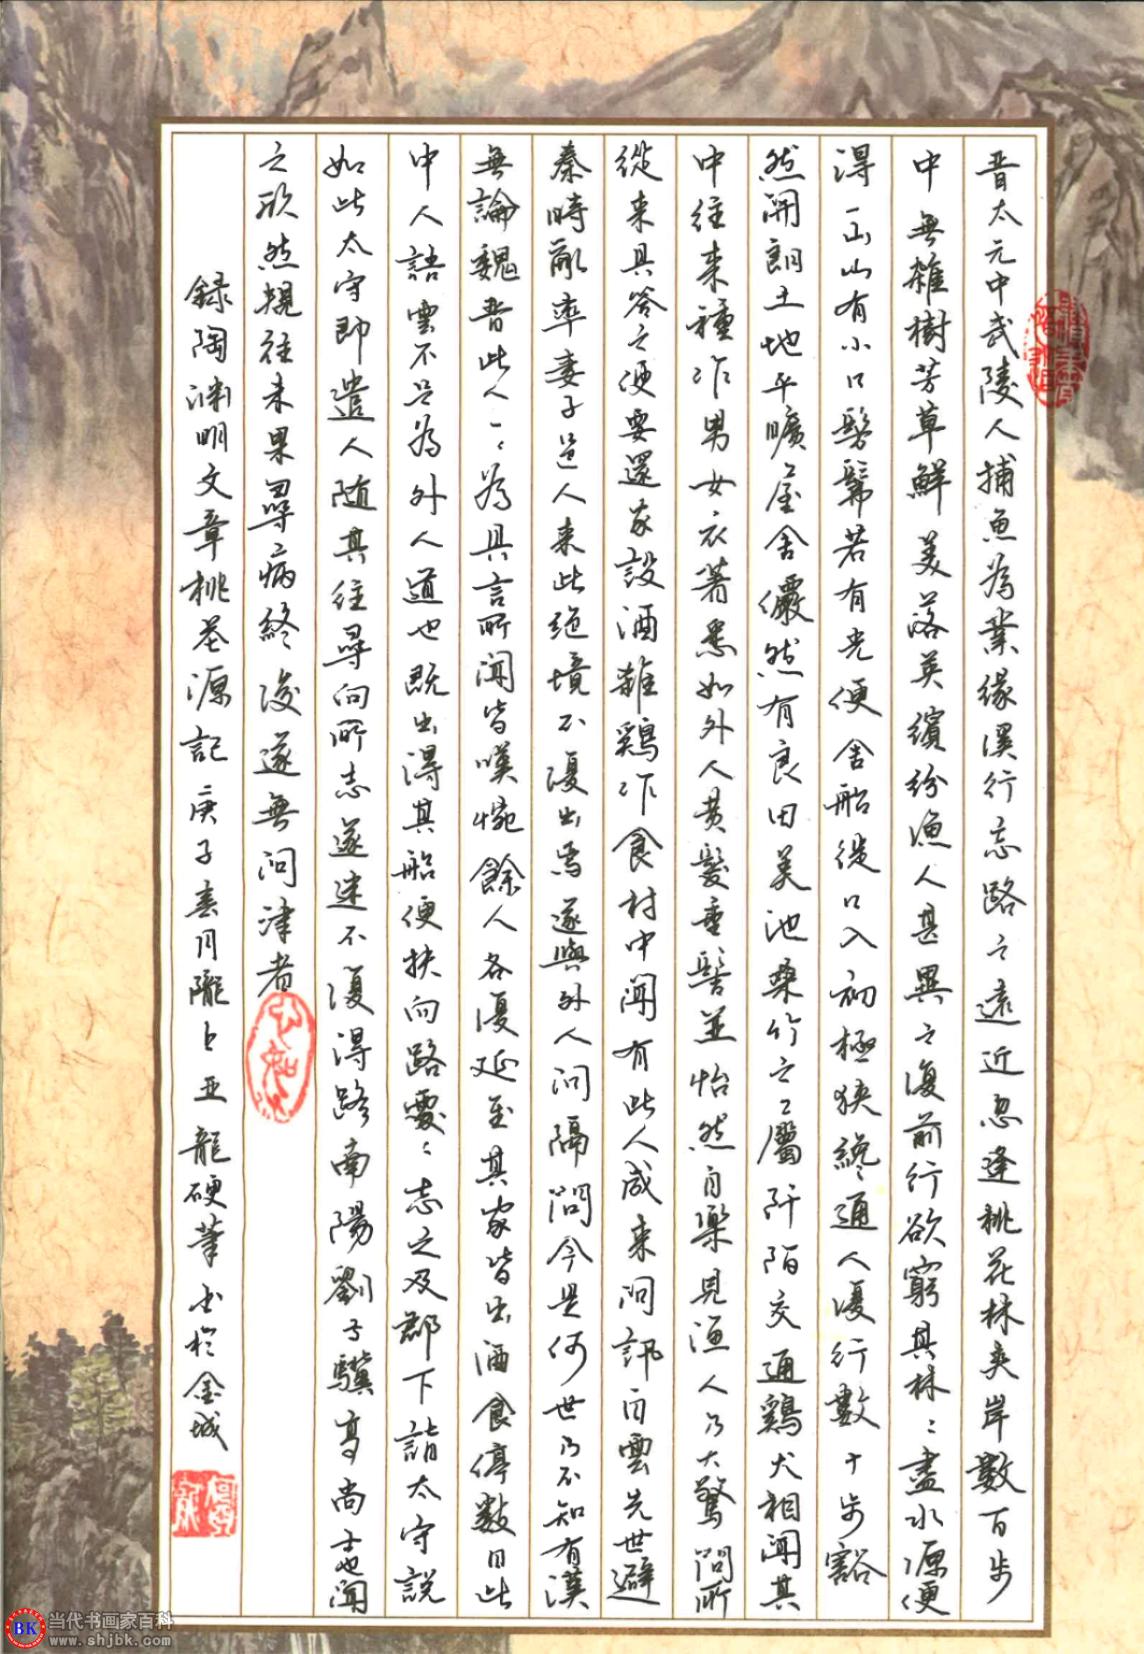 晋太元中武陵人捕魚為業緣溪行忘路之遠近忽逢桃花林夾岸數百步
中無雜樹芳草鮮美落英繽紛漁人甚異之復前行欲窮其林〻盡水源便
得一山山有小口髣髴若有光便舍船從口入初極狹纔通人復行數十步豁
然開朗土地平曠屋舍儼然有良田美池桑竹之〻屬阡陌交通鷄犬相聞其
中往来種作男女衣著悉如外人黄髮垂髫並怡然自樂見漁人乃大驚問所
從来具答之便要還家設酒雞鷄作食村中聞有此人咸来問訊自雲先世避
秦時亂率妻子邑人来此絕境不復出焉遂與外人问隔問今是何世乃不知有漢
無論魏晋此人一〻為具言所聞皆嘆惋餘人各復延至其家皆出酒食停數日此
中人語雲不足為外人道也既出得其船便扶向路處〻志之及郡下詣太守説
如此太守即遣人随其往尋向所志遂迷不復得路南陽劉子驥高尚士也聞
之欣然規往未果尋病終後遂無问津者
録陶渊明文章桃花源記庚子春月隴上亚龍硬筆书於金城
BK 当代书画家百科
www.shjbk.com